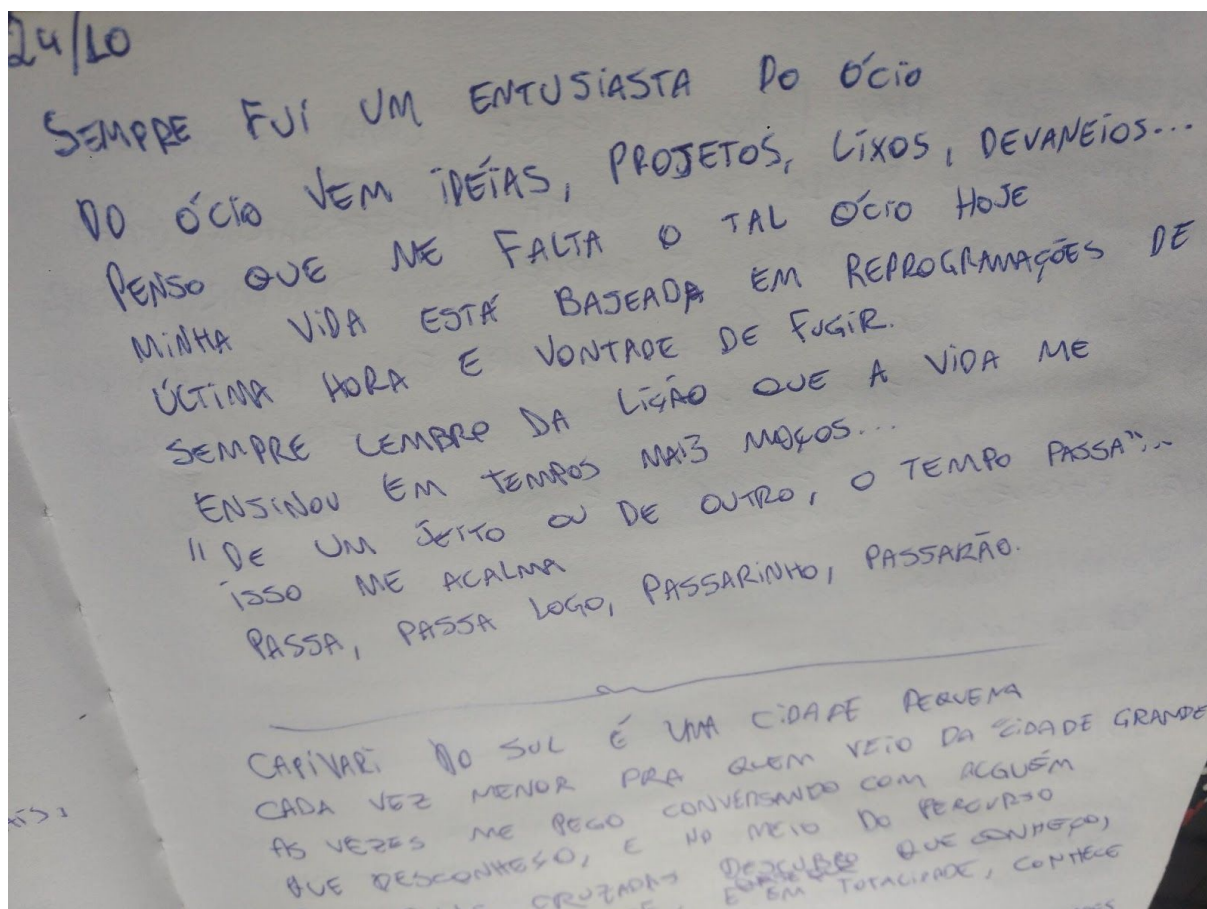 24/10
SEMPRE FUI UM ENTUSIASTA DO ÓCIO
DO ÓCIO VEM IDÉIAS, PROJETOS, LIXOS, DEVANEIOS...
PENSO QUE ME FALTA O TAL ÓCIO HOJE
MINHA VIDA ESTÁ BASEADA EM REPROGRAMAÇÕES DE
ÚLTIMA HORA E VONTADE DE FUGIR.
SEMPRE LEMBRO DA LIÇÃO QUE A VIDA ME
ENSINOU EM TEMPOS MAIS MOÇOS...
"DE UM JEITO OU DE OUTRO, O TEMPO PASSA"...
ISSO ME ACALMA
PASSA, PASSA LOGO, PASSARINHO, PASSARÃO.
CAPIVARI DO SUL É UMA CIDADE PEQUENA
CADA VEZ MENOR PRA QUEM VEIO DA CIDADE GRANDE
AS VEZES ME PEGO CONVERSANDO COM ALGUÉM
QUE DESCONHEÇO, E NO MEIO DO PERCURSO
CRUZADAS DESCUBRO QUE CONHEÇO,
E EM TOTALIDADE, CONHECE